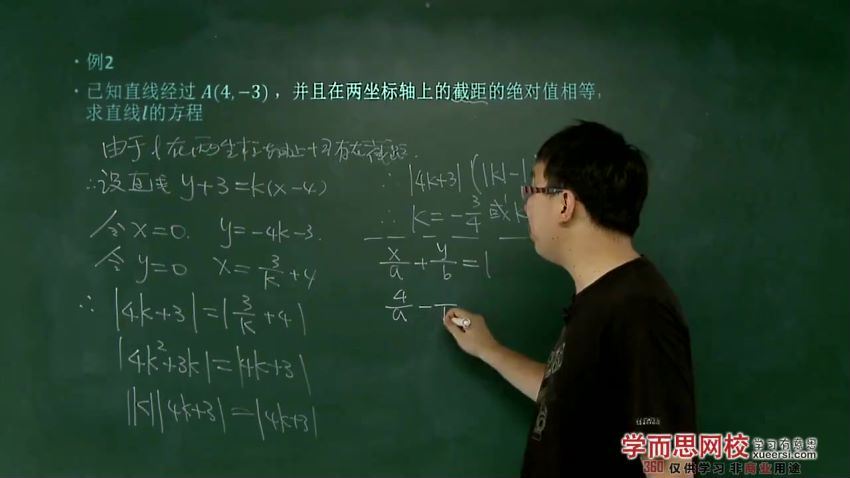 • 例2
• 已知直线经过 A(4,−3)，并且在两坐标轴上的截距的绝对值相等,
求直线l的方程
由于l在两坐标轴上均存在截距.
∴设直线 y+3=k(x-4)
令x=0. y=-4k-3.
令y=0 x=3/k+4
∴ |4k+3|=|3/k+4|
|4k²+3k|=|4k+3|
|k||4k+3|=|4k+3|
∴ |4k+3|(|k|-1
∴ k=-3/4 或k
x/a+y/b=1
4/a-
学而思网校 学习有意思
xueersi.com
360 仅供学习 非商业用途